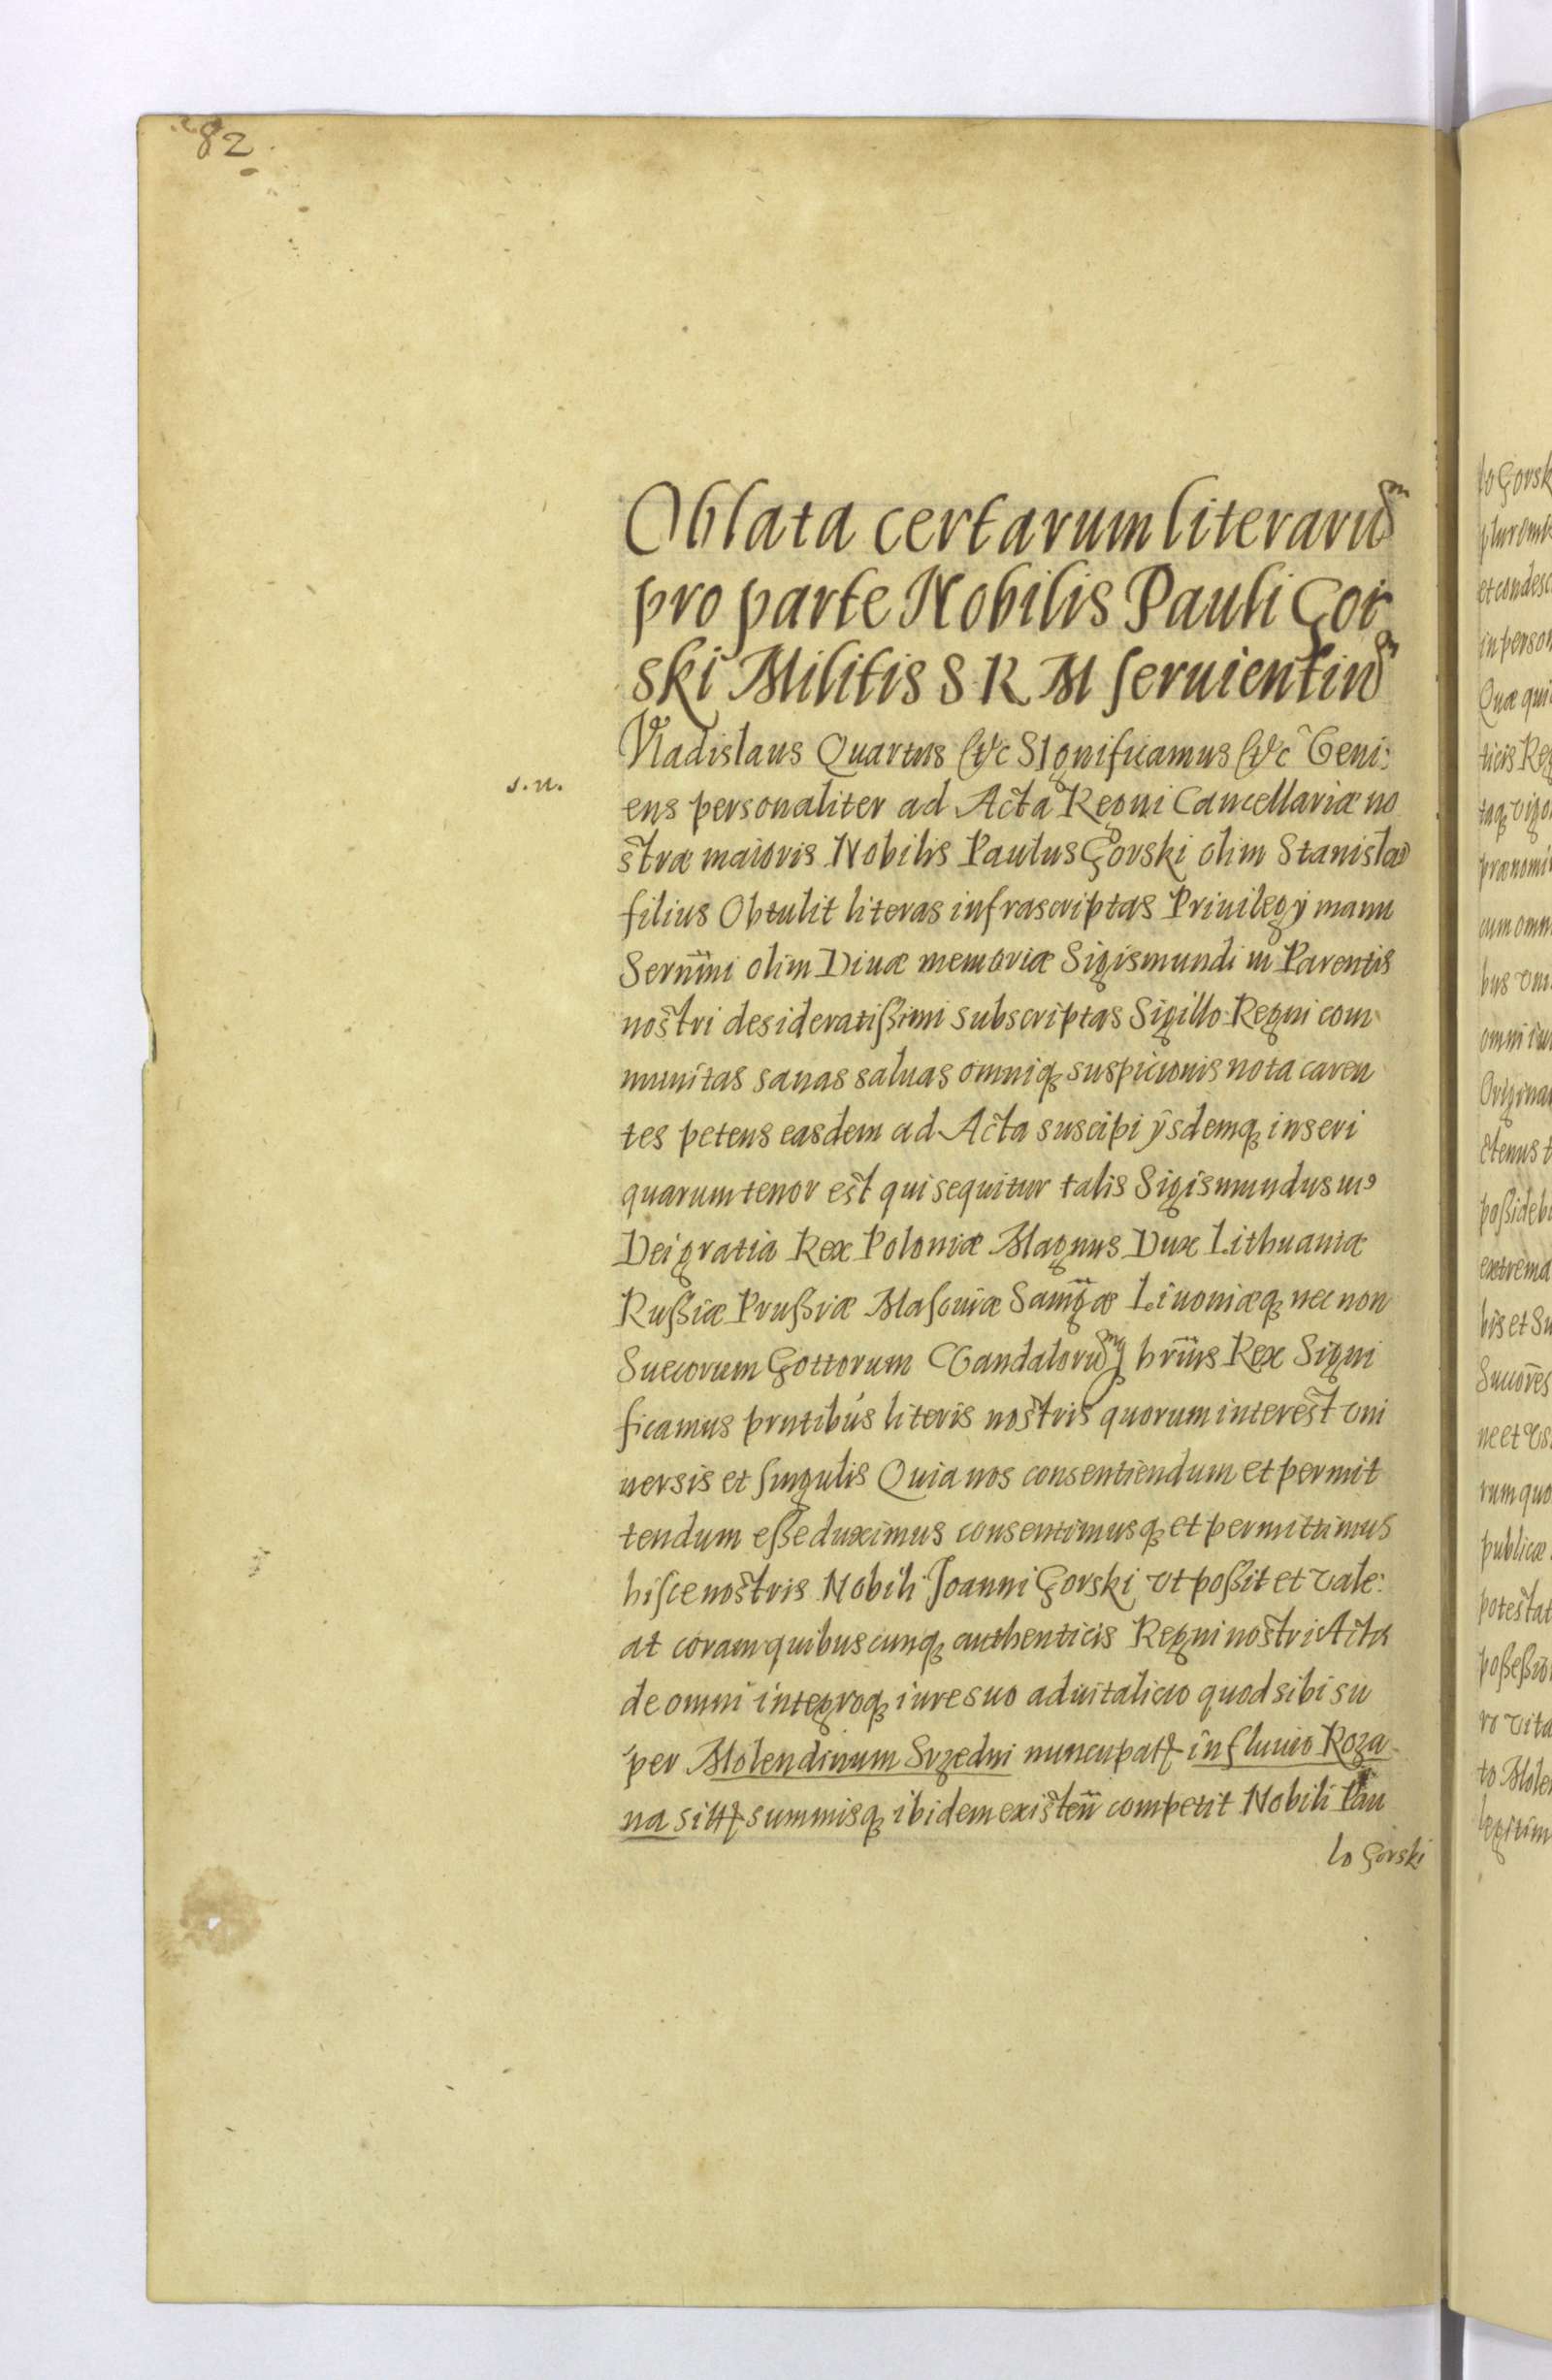 82
Oblata certarum literarum
pro parte Nobilis Pauli Gor
ski Militis S R M seruientium
Vladislaus Quartus &c SIgnificamus &c Veni:
s. n.
ens personaliter ad Acta Regni Cancellariæ no
stræ maioris Nobilis Paulus Gorski olim Stanislai
filius Obtulit literas infrascriptas Priuilegÿ manu
Sernmi olim Diuæ memoriæ Sigismundi iii Parentis
nostri desideratißimi subscriptas Sigillo Regni com
munitas sanas saluas omniq suspicionis nota caren
tes petens easdem ad Acta suscipi ÿsdemq inseri
quarum tenor est qui sequitur talis Sigismundus iii9
Dei gratia Rex Poloniæ Magnus Dux Lithuaniæ
Rußiæ Prußiæ Masouiæ Samgæ Liuoniæq nec non
Suecorum Gottorum Vandalorumq hrius Rex Signi
ficamus prntibus literis nostris quorum interest vni
uersis et singulis Quia nos consentiendum et permit
tendum eße duximus consentimusq et permittimus
hisce nostris Nobili Joanni Gorski vt poßit et vale:
at coram quibuscunq authenticis Regni nostri Actis
de omni integroq iure suo aduitalicio quod sibi su
per Molendinum Srzedni nuncupat in fluuio Roza
na sitt summisq ibidem existen competit Nobili Pau
lo Gorski